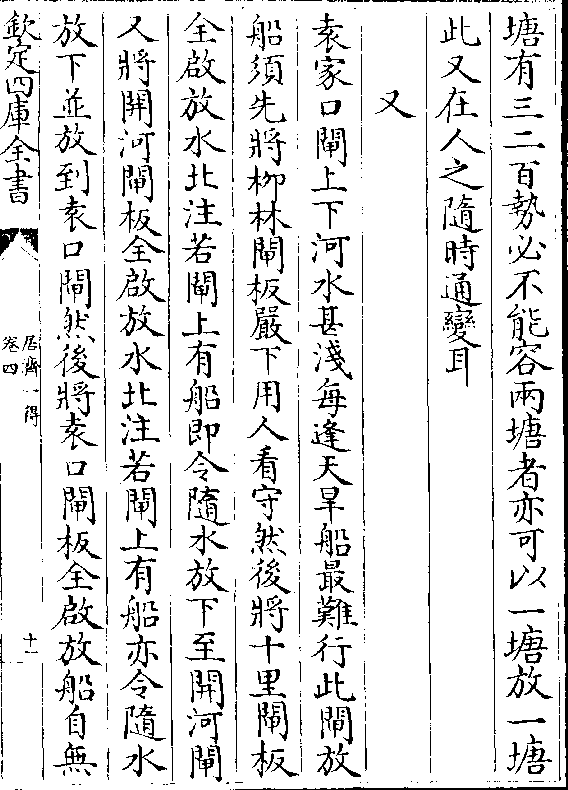 塘有三二百勢必不能容兩塘者亦可以一塘放一塘
此又在人之隨時通變耳
又
袁家口閘上下河水甚淺每逢天旱船最難行此閘放
船須先將栁林閘板嚴下用人看守然後將十里閘板
全啟放水北注若閘上有船即令隨水放下至開河閘
又將開河閘板全啟放水北注若閘上有船亦令隨水
放下並放到袁口閘然後將袁口閘板全啟放船自無
欽定四庫全書
居濟一得
卷四
十一